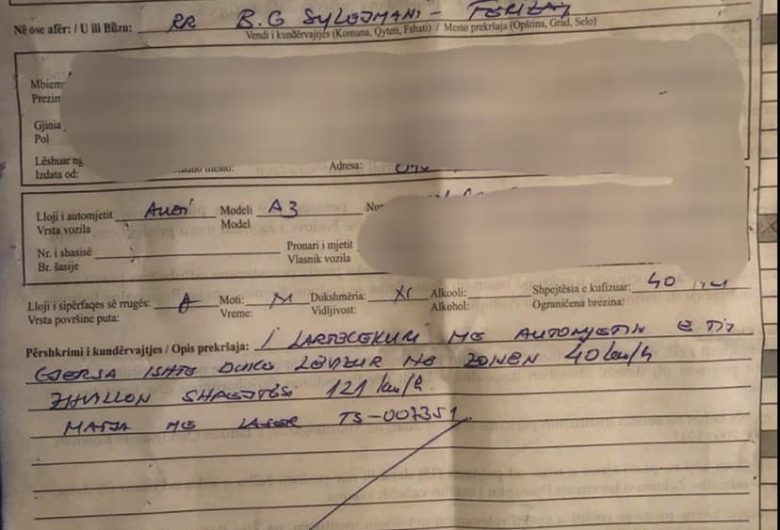 Në ose afër: / U ili Blizu: RR B.G SYLEJMANI - FERIZAJ
Vendi i kundërvajtjes (Komuna, Qyteti, Fshati) / Mesto prekršaja (Opština, Grad, Selo)
Mbiem
Prezim
Gjinia
Pol
Lëshuar ng
Izdata od: Adresa:
Lloji i automjetit AUDI Modeli A3
Vrsta vozila Model
Nr. i shasisë Pronari i mjetit
Br. šasije Vlasnik vozila
Lloji i sipërfaqes së rrugës: A Moti: M Dukshmëria: XI Alkooli: Shpejtësia e kufizuar: 40
Vrsta površine puta: Vreme: Vidljivost: Alkohol: Ograničena brezina:
Përshkrimi i kundërvajtjes / Opis prekršaja: I LARTECEKURI ME AUTOMJETIN E TIJ
GJERSA ISHTE DUKE LËVIZUR ME ZONEN 40 km/h
ZHVILLON SHPEJTËSI 121 km/h
MATJA ME LASER TS-007351